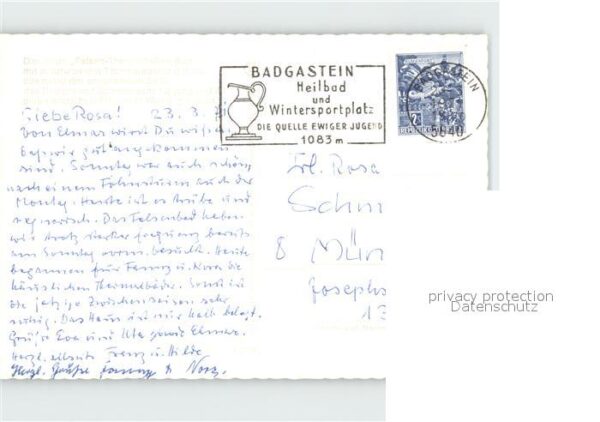 BADGASTEIN
Heilbad
und
Wintersportplatz
DIE QUELLE EWIGER JUGEND
1083 m
BADGASTEIN
5640
Liebe Rosa! 23. 3.
von Elmar wirst Du wissen
daß wir gut angekommen
sind. Sonntag war auch schön
nach einem Föhnsturm auch der
Montag. Heute ist es trübe und
regnerisch. Das Felsenbad haben
wir trotz starker Frequenz bereits
am Sonntag vorm. besucht. Heute
begannen für Fanny u. Nora die
häuslichen Thermalbäder. Sonst ist
die jetzige Zwischensaison sehr
ruhig. Das Haus ist nur halb belegt.
Grüße Eva und Uta sowie Elmar.
Herzl. allseits Franz u. Hilde
Herzl. Grüße Fanny
Frl. Rosa
Schm
8 Mün
Josephs
13
privacy protection
Datenschutz